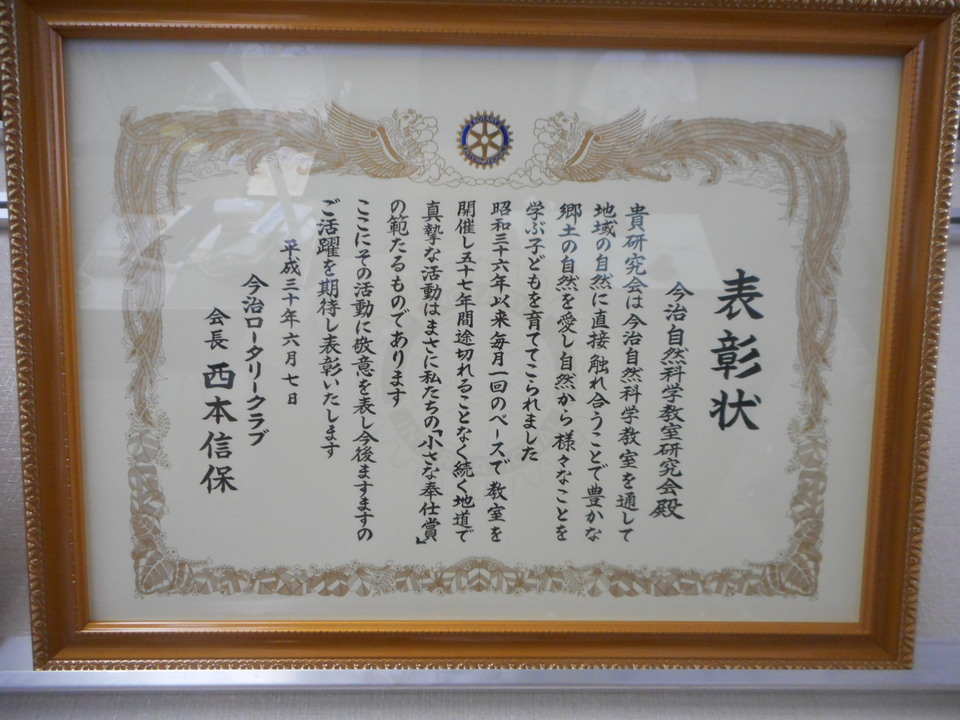 表彰状
今治自然科学教室研究会殿
貴研究会は今治自然科学教室を通して
地域の自然に直接触れ合うことで豊かな
郷土の自然を愛し自然から様々なことを
学ぶ子どもを育ててこられました
昭和三十六年以来毎月一回のペースで教室を
開催し五十七年間途切れることなく続く地道で
真摯な活動はまさに私たちの「小さな奉仕賞」
の範たるものであります
ここにその活動に敬意を表し今後ますますの
ご活躍を期待し表彰いたします
平成三十年六月七日
今治ロータリークラブ
会長 西本信保